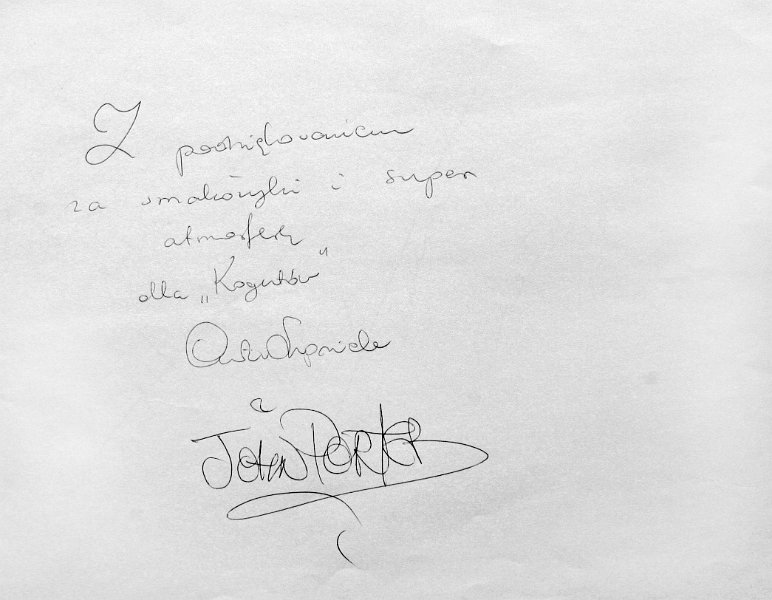 Z podziękowaniem
za smakołyki i super
atmosferę
dla „Kogutów"
John Porter